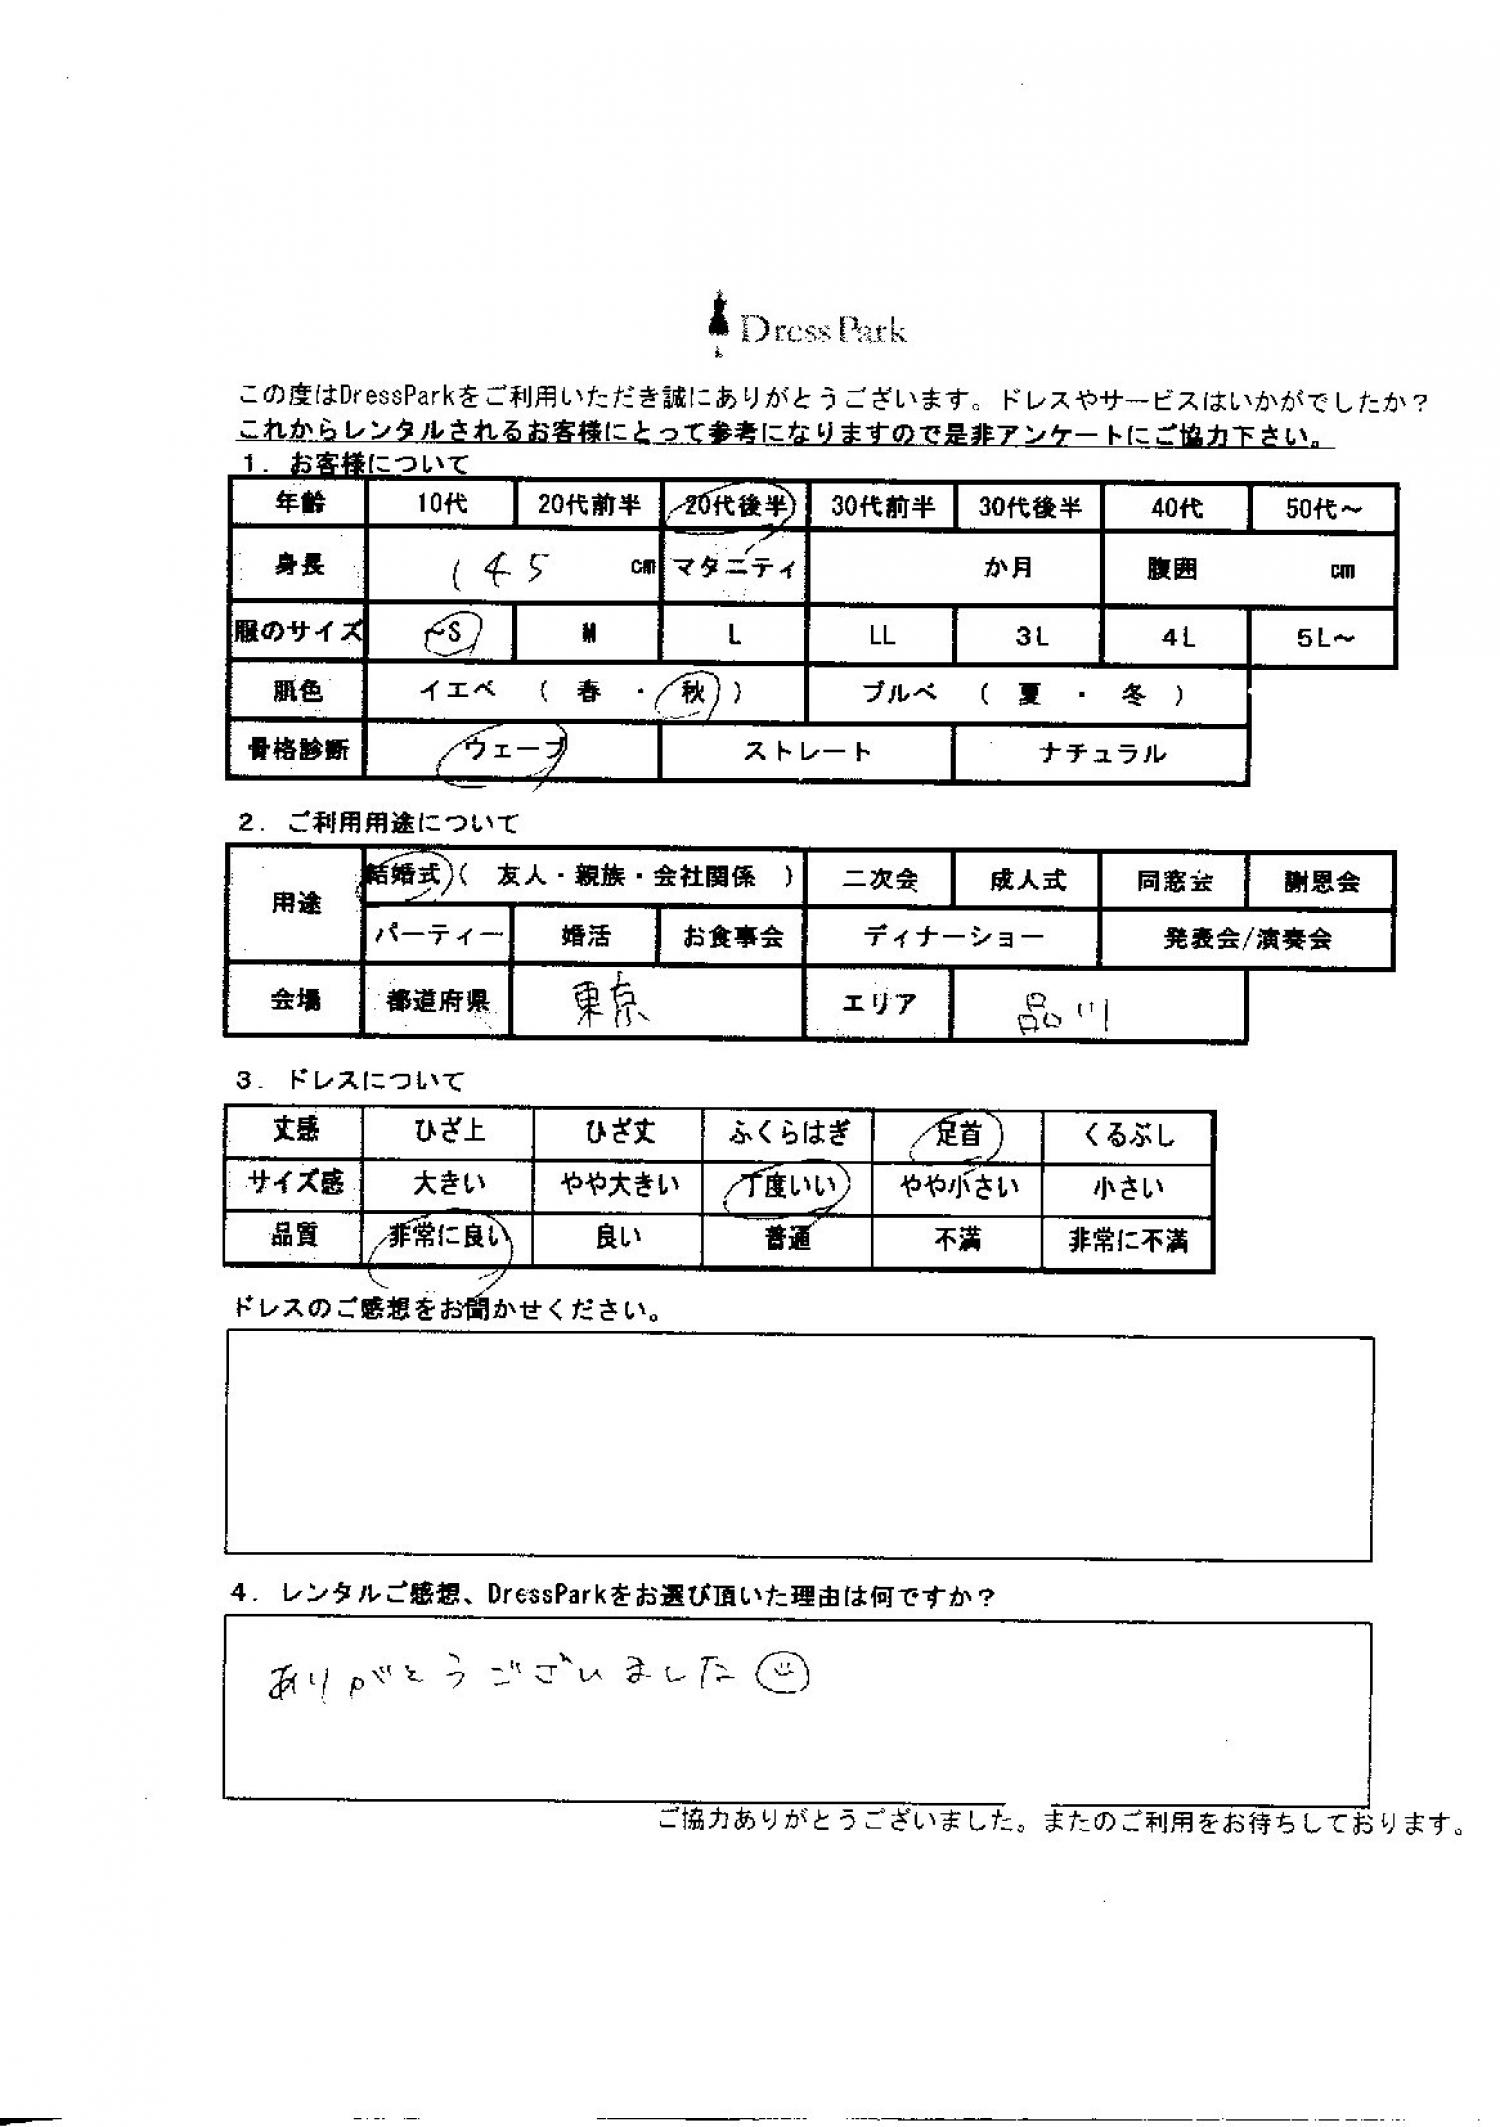 Dress Park
この度はDressParkをご利用いただき誠にありがとうございます。ドレスやサービスはいかがでしたか？
これからレンタルされるお客様にとって参考になりますので是非アンケートにご協力下さい。
1. お客様について
年齢 10代 20代前半 20代後半 30代前半 30代後半 40代 50代～
身長 145 cm マタニティ か月 腹囲 cm
服のサイズ ～S M L LL 3L 4L 5L～
肌色 イエベ （ 春 ・ 秋 ） ブルベ （ 夏 ・ 冬 ）
骨格診断 ウェーブ ストレート ナチュラル
2. ご利用用途について
用途 結婚式（ 友人・親族・会社関係 ） 二次会 成人式 同窓会 謝恩会
パーティー 婚活 お食事会 ディナーショー 発表会/演奏会
会場 都道府県 東京 エリア 品川
3. ドレスについて
丈感 ひざ上 ひざ丈 ふくらはぎ 足首 くるぶし
サイズ感 大きい やや大きい 丁度いい やや小さい 小さい
品質 非常に良い 良い 普通 不満 非常に不満
ドレスのご感想をお聞かせください。
4. レンタルご感想、DressParkをお選び頂いた理由は何ですか？
ありがとうございました
ご協力ありがとうございました。またのご利用をお待ちしております。